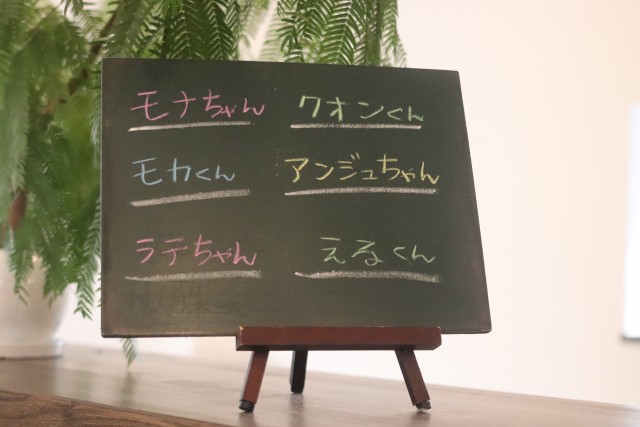 モナちゃん
クオンくん
モカくん
アンジュちゃん
ラテちゃん
えるくん